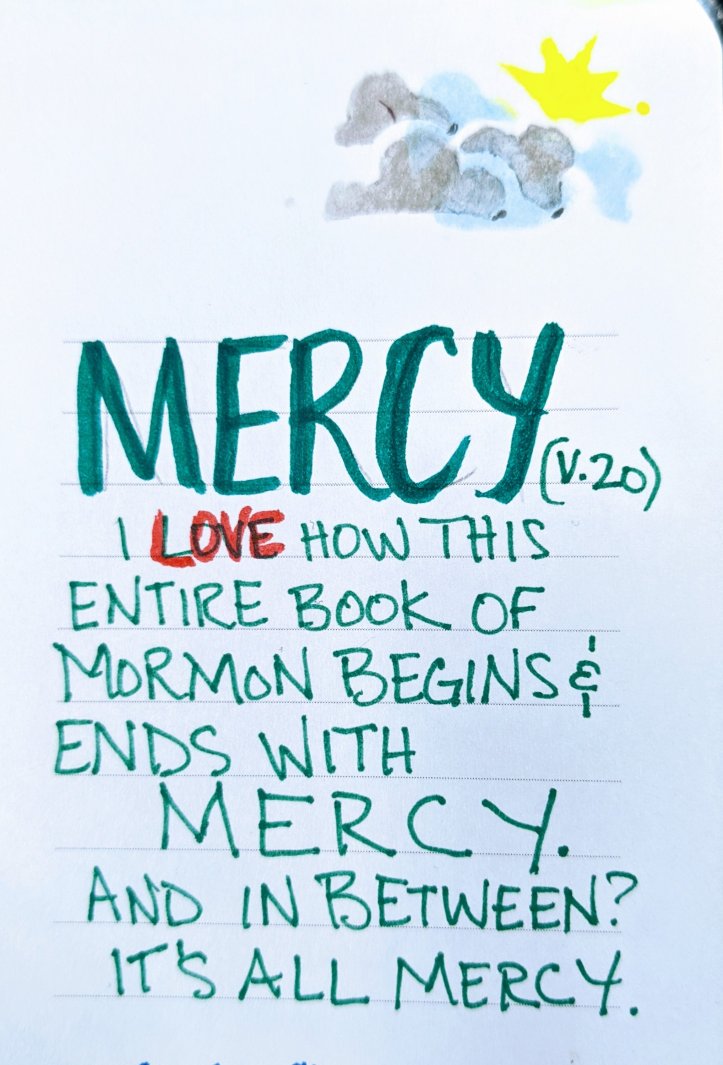 MERCY (V.20)
I LOVE HOW THIS
ENTIRE BOOK OF
MORMON BEGINS &
ENDS WITH
MERCY.
AND IN BETWEEN?
IT'S ALL MERCY.